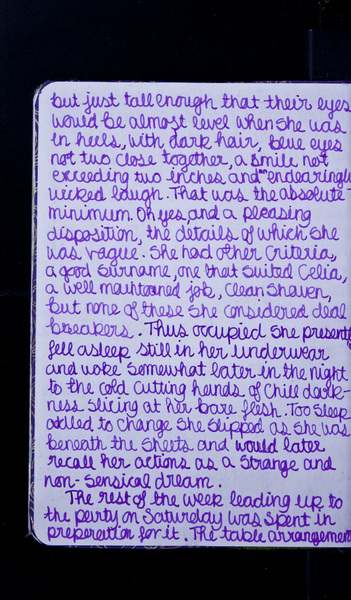 but just tall enough that their eyes
would be almost level when she was
in heels, with dark hair, blue eyes
not two close together, a smile not
exceeding two inches, and endearingly
wicked laugh. That was the absolute
minimum. Oh yes, and a pleasing
disposition, the details of which she
was vague. She had other criteria,
a good surname, one that suited Celia,
a well maintained job, clean shaven,
but none of these she considered deal
breakers. Thus occupied she present
fell asleep still in her underwear
and woke somewhat later in the night
to the cold cutting hands of chill dark-
ness slicing at her bare flesh. Too sleep
addled to change she slipped as she was
beneath the sheets and would later
recall her actions as a strange and
non-sensical dream.
The rest of the week leading up to
the party on Saturday was spent in
preperation for it. The table arrangement